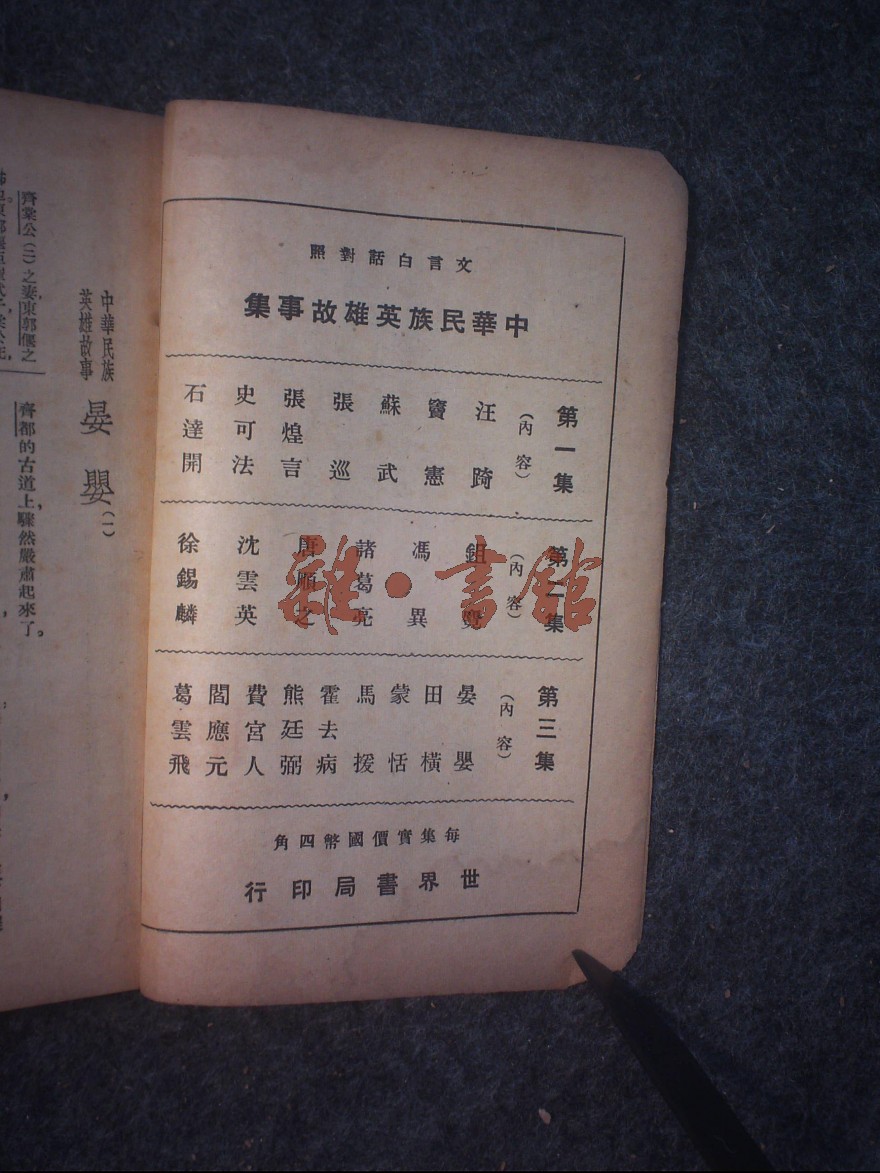 文言白話對照
中華民族英雄故事集
第一集
（內容）
汪踦
竇憲
蘇武
張巡
張煌言
史可法
石達開
第二集
（內容）
鉏麑
馮異
諸葛亮
唐順之
沈雲英
徐錫麟
第三集
（內容）
晏嬰
田橫
蒙恬
馬援
霍去病
熊廷弼
費宮人
閻應元
葛雲飛
每集實價國幣四角
世界書局印行
雜·書館
中華民族
英雄故事
晏嬰（一）
齊棠公（二）之妻，東郭偃之
齊都的古道上，驟然嚴肅起來了。